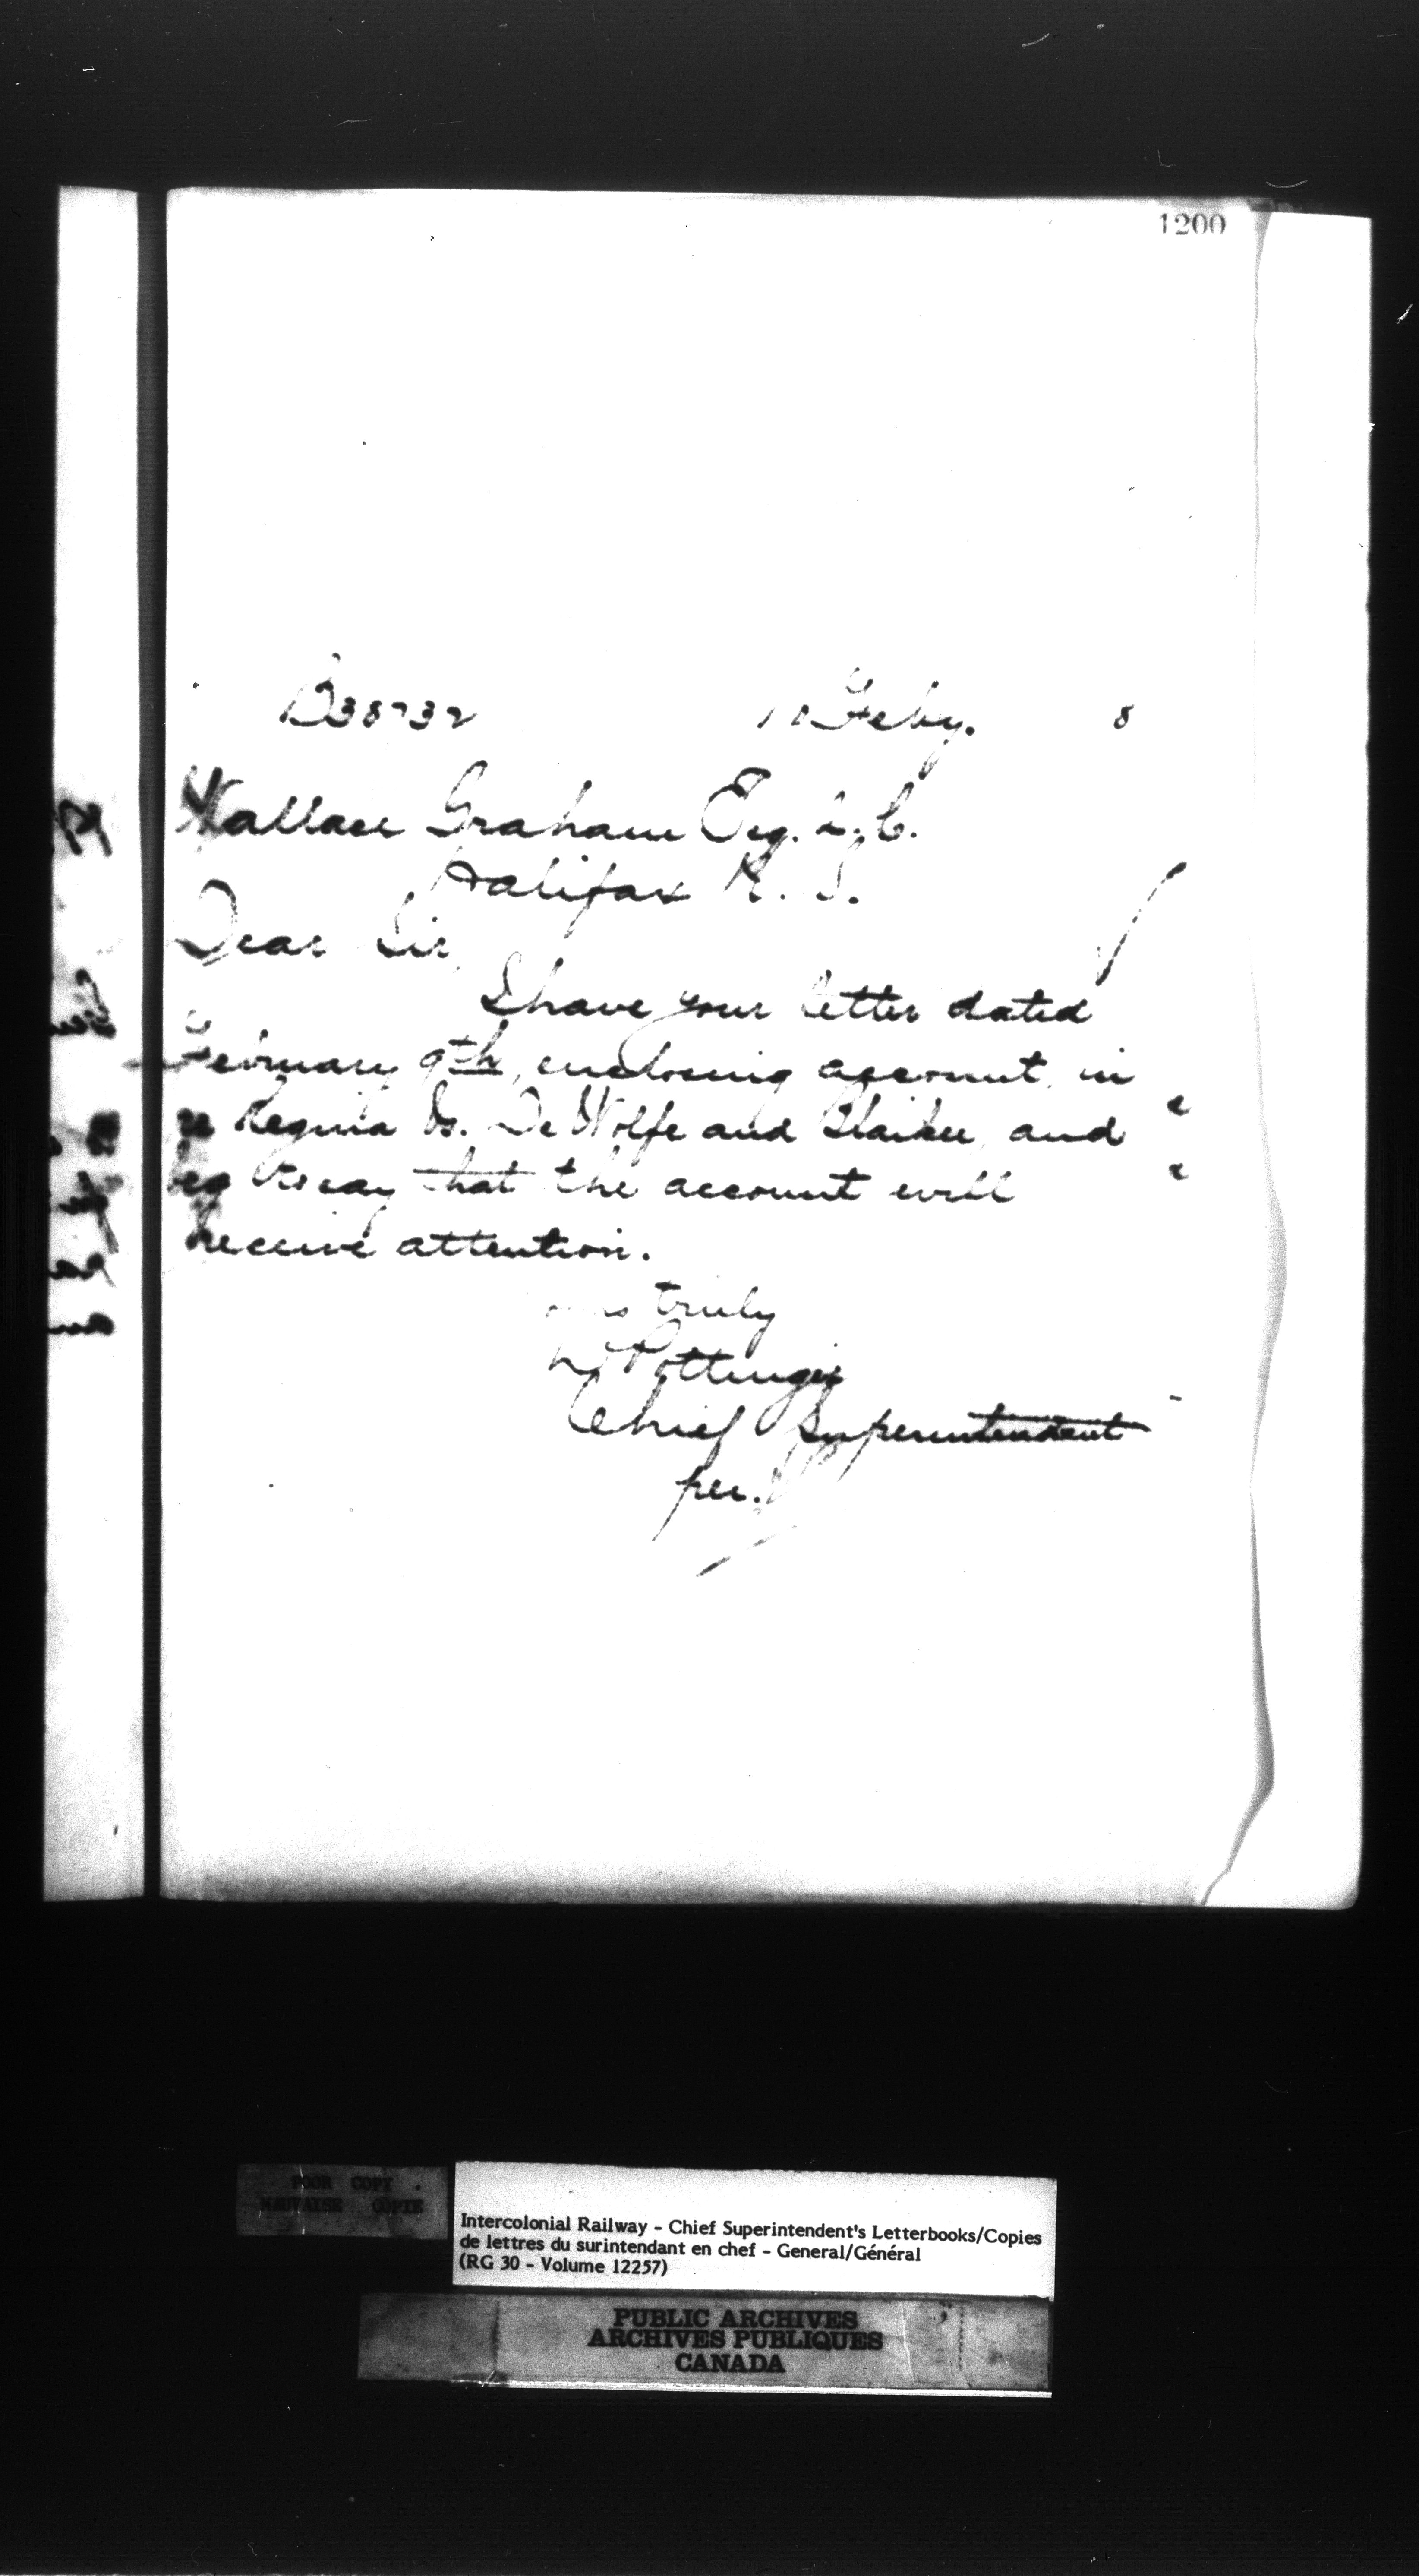 1200
B38732 10 Feby. 8
Wallace Graham Esq. Q.C.
Halifax N. S.
Dear Sir,
I have your letter dated
February 9th, enclosing account in
re Regina Vs. De Wolfe and, and
beg to say that the account will
receive attention.
truly
Pottinger
Chief Superintendent
per.
POOR COPY
MAUVAISE COPIE
Intercolonial Railway - Chief Superintendent's Letterbooks/Copies
de lettres du surintendant en chef - General/Général
(RG 30 - Volume 12257)
PUBLIC ARCHIVES
ARCHIVES PUBLIQUES
CANADA